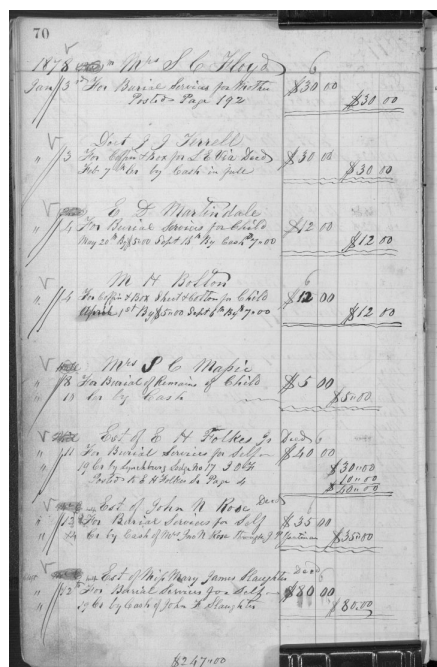 70
1878 Mrs S C Floyd 6
Jany 3rd For Burial Services for Mother $30 00
Posted Page 192 $30 00
Doct J J Terrell
" 3 For Coffin & box for L E Via Decd $30 00
Feb 7th Cr by Cash in full $30 00
E D Martindale
" 4 For Burial Services for Child $12 00
May 20th By $5.00 Sept 15th By Cash $7.00 $12 00
M H Bolton 6
" 4 For Coffin & Box Sheet & Cotton for Child $12 00
April 1st By $5.00 Sept 6th By $7.00 $12 00
Mrs S C Mapie
" 8 For Burial of Remains of Child $5 00
" 10 Cr by Cash $5.00
Est of E H Folkes Jr Decd 6
" 11 For Burial Services for Self $40 00
19 Cr by Lynchburg Lodge No 17 I O O F $30.00
Posted to E H Folkes Page 4 10.00
$40.00
Est of John N Rose Decd
" 12 For Burial Services for Self $35 00
" 24 Cr by Cash of Mrs Jno N Rose through J P $35.00
Est of Miss Mary James Slaughter Decd
" 12th For Burial Services for Self $80 00
" 19 Cr by Cash of John F Slaughter $80.00
$247.00